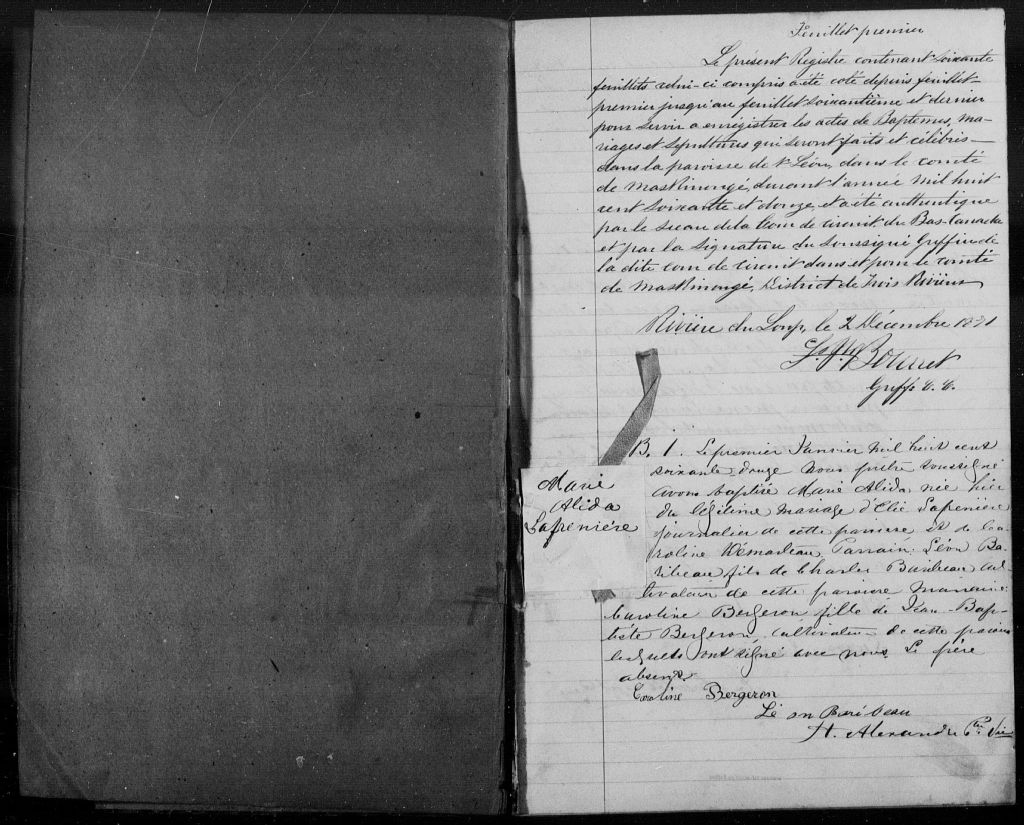 Feuillet premier
Le présent Registre contenant soixante
feuillets celui-ci compris a été coté depuis feuillet
premier jusqu'au feuillet soixantième et dernier
pour servir a enregistrer les actes de Baptemes, ma-
riages et sepultures qui seront faits et célébrés
dans la paroisse de St Léon, dans le comté
de Maskinongé, durant l'année mil huit
cent soixante et douze et a été authentiqué
par le sceau de la Cour de circuit du Bas-Canada
et par la signature du soussigné Greffier de
la dite cour de Circuit dans et pour le comté
de Maskinongé, District de Trois Rivières
Rivière du Loup, le 2 Décembre 1871
Greff. C. C.
B. 1. Le premier Janvier mil huit cent
soixante-douze nous prêtre soussigné
avons baptisé Marie Alida, née hier
du légitime mariage d'Elie Lafrenière
journalier de cette paroisse et de Ca-
roline Parrain: Léon Ba-
ribeau fils de Charles Baribeau cul-
tivateur de cette paroisse Marraine:
Caroline Bergeron fille de Jean-Bap-
tiste Bergeron, cultivateur de cette paroisse
lesquels ont signé avec nous. Le père
absent.
Marie
Alida
Lafrenière
Caroline Bergeron
Lé on Bari beau
H. Alexandre Ptre Vic